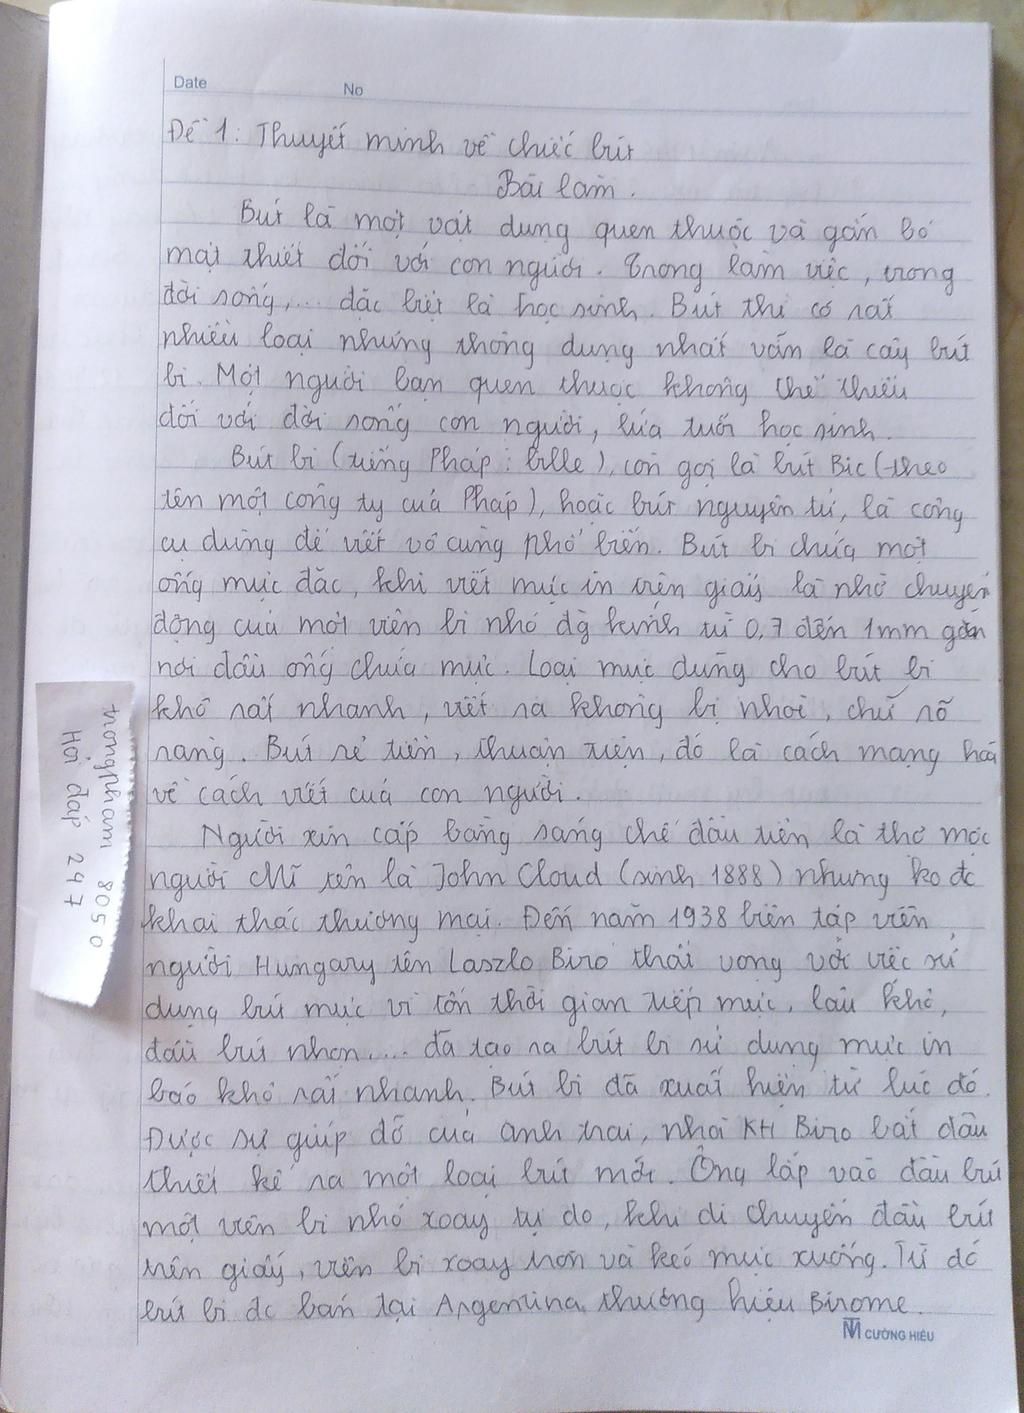 Date No
Đề 1: Thuyết minh về chiếc bút
Bài làm.
Bút là một vật dụng quen thuộc và gắn bó
mật thiết đối với con người. Trong làm việc, trong
đời sống,... đặc biệt là học sinh. Bút thì có rất
nhiều loại nhưng thông dụng nhất vẫn là cây bút
bi. Một người bạn quen thuộc không thể thiếu
đối với đời sống con người, lứa tuổi học sinh.
Bút bi (tiếng Pháp: bille), còn gọi là bút Bic (theo
tên một công ty của Pháp), hoặc bút nguyên tử, là công
cụ dùng để viết vô cùng phổ biến. Bút bi chứa một
ống mực đặc, khi viết mực in trên giấy là nhờ chuyển
động của một viên bi nhỏ đg kính từ 0,7 đến 1mm gắn
nơi đầu ống chứa mực. Loại mực dùng cho bút bi
khô rất nhanh, viết ra không bị nhoè, chữ rõ
ràng. Bút rẻ tiền, thuận tiện, đó là cách mạng hoá
về cách viết của con người.
Người xin cấp bằng sáng chế đầu tiên là thợ mộc
người Mĩ tên là John Cloud (sinh 1888) nhưng ko đc
khai thác thương mại. Đến năm 1938 biên tập viên
người Hungary tên Laszlo Biro thất vọng với việc sử
dụng bút mực vì tốn thời gian tiếp mực, lâu khô,
đầu bút nhọn.... đã tạo ra bút bi sử dụng mực in
báo khô rất nhanh. Bút bi đã xuất hiện từ lúc đó.
Được sự giúp đỡ của anh trai, nhà KH Biro bắt đầu
thiết kế ra một loại bút mới. Ông lắp vào đầu bút
một viên bi nhỏ xoay tự do, khi di chuyển đầu bút
trên giấy, viên bi xoay tròn và kéo mực xuống. Từ đó
bút bi đc bán tại Argentina thương hiệu Birome.
TM CƯỜNG HIẾU
trongpham 8050
Hỏi đáp 247